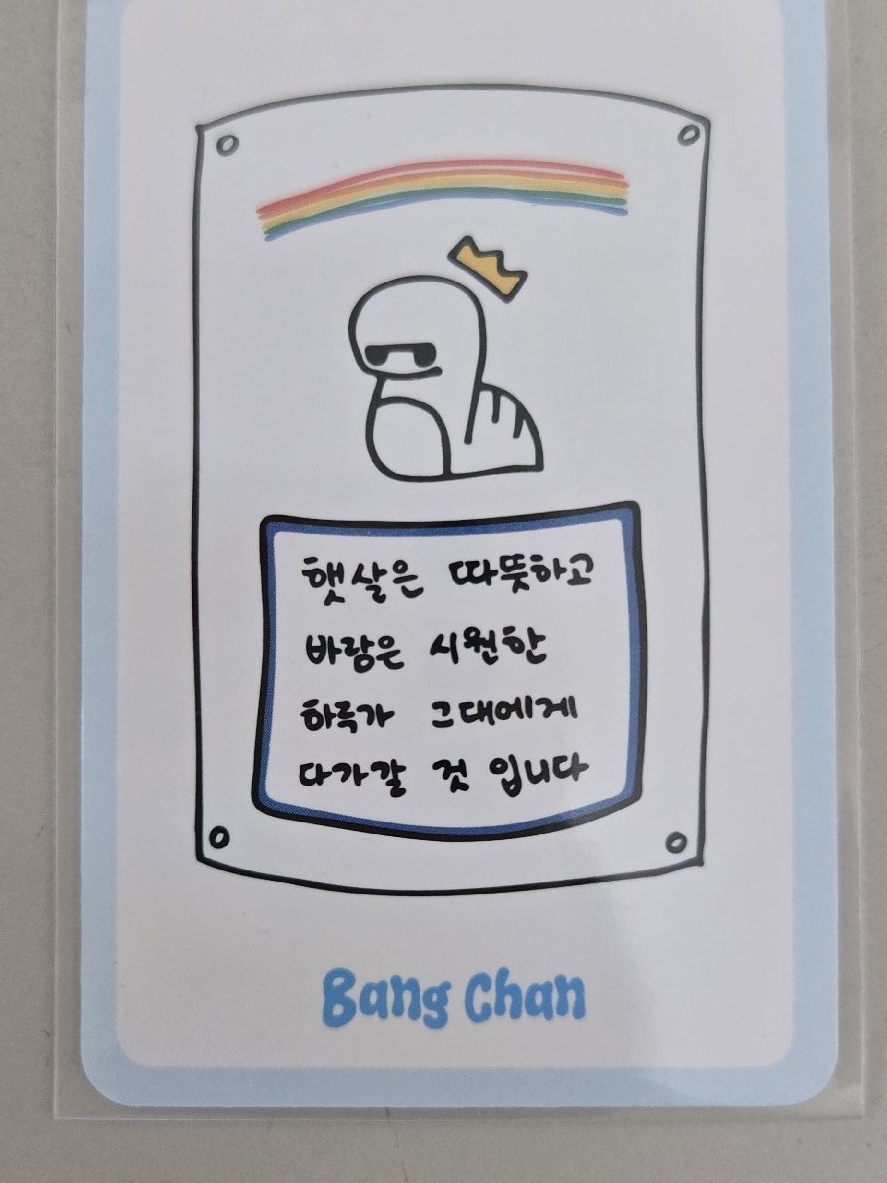 햇살은 따뜻하고
바람은 시원한
하루가 그대에게
다가갈 것 입니다
Bang Chan